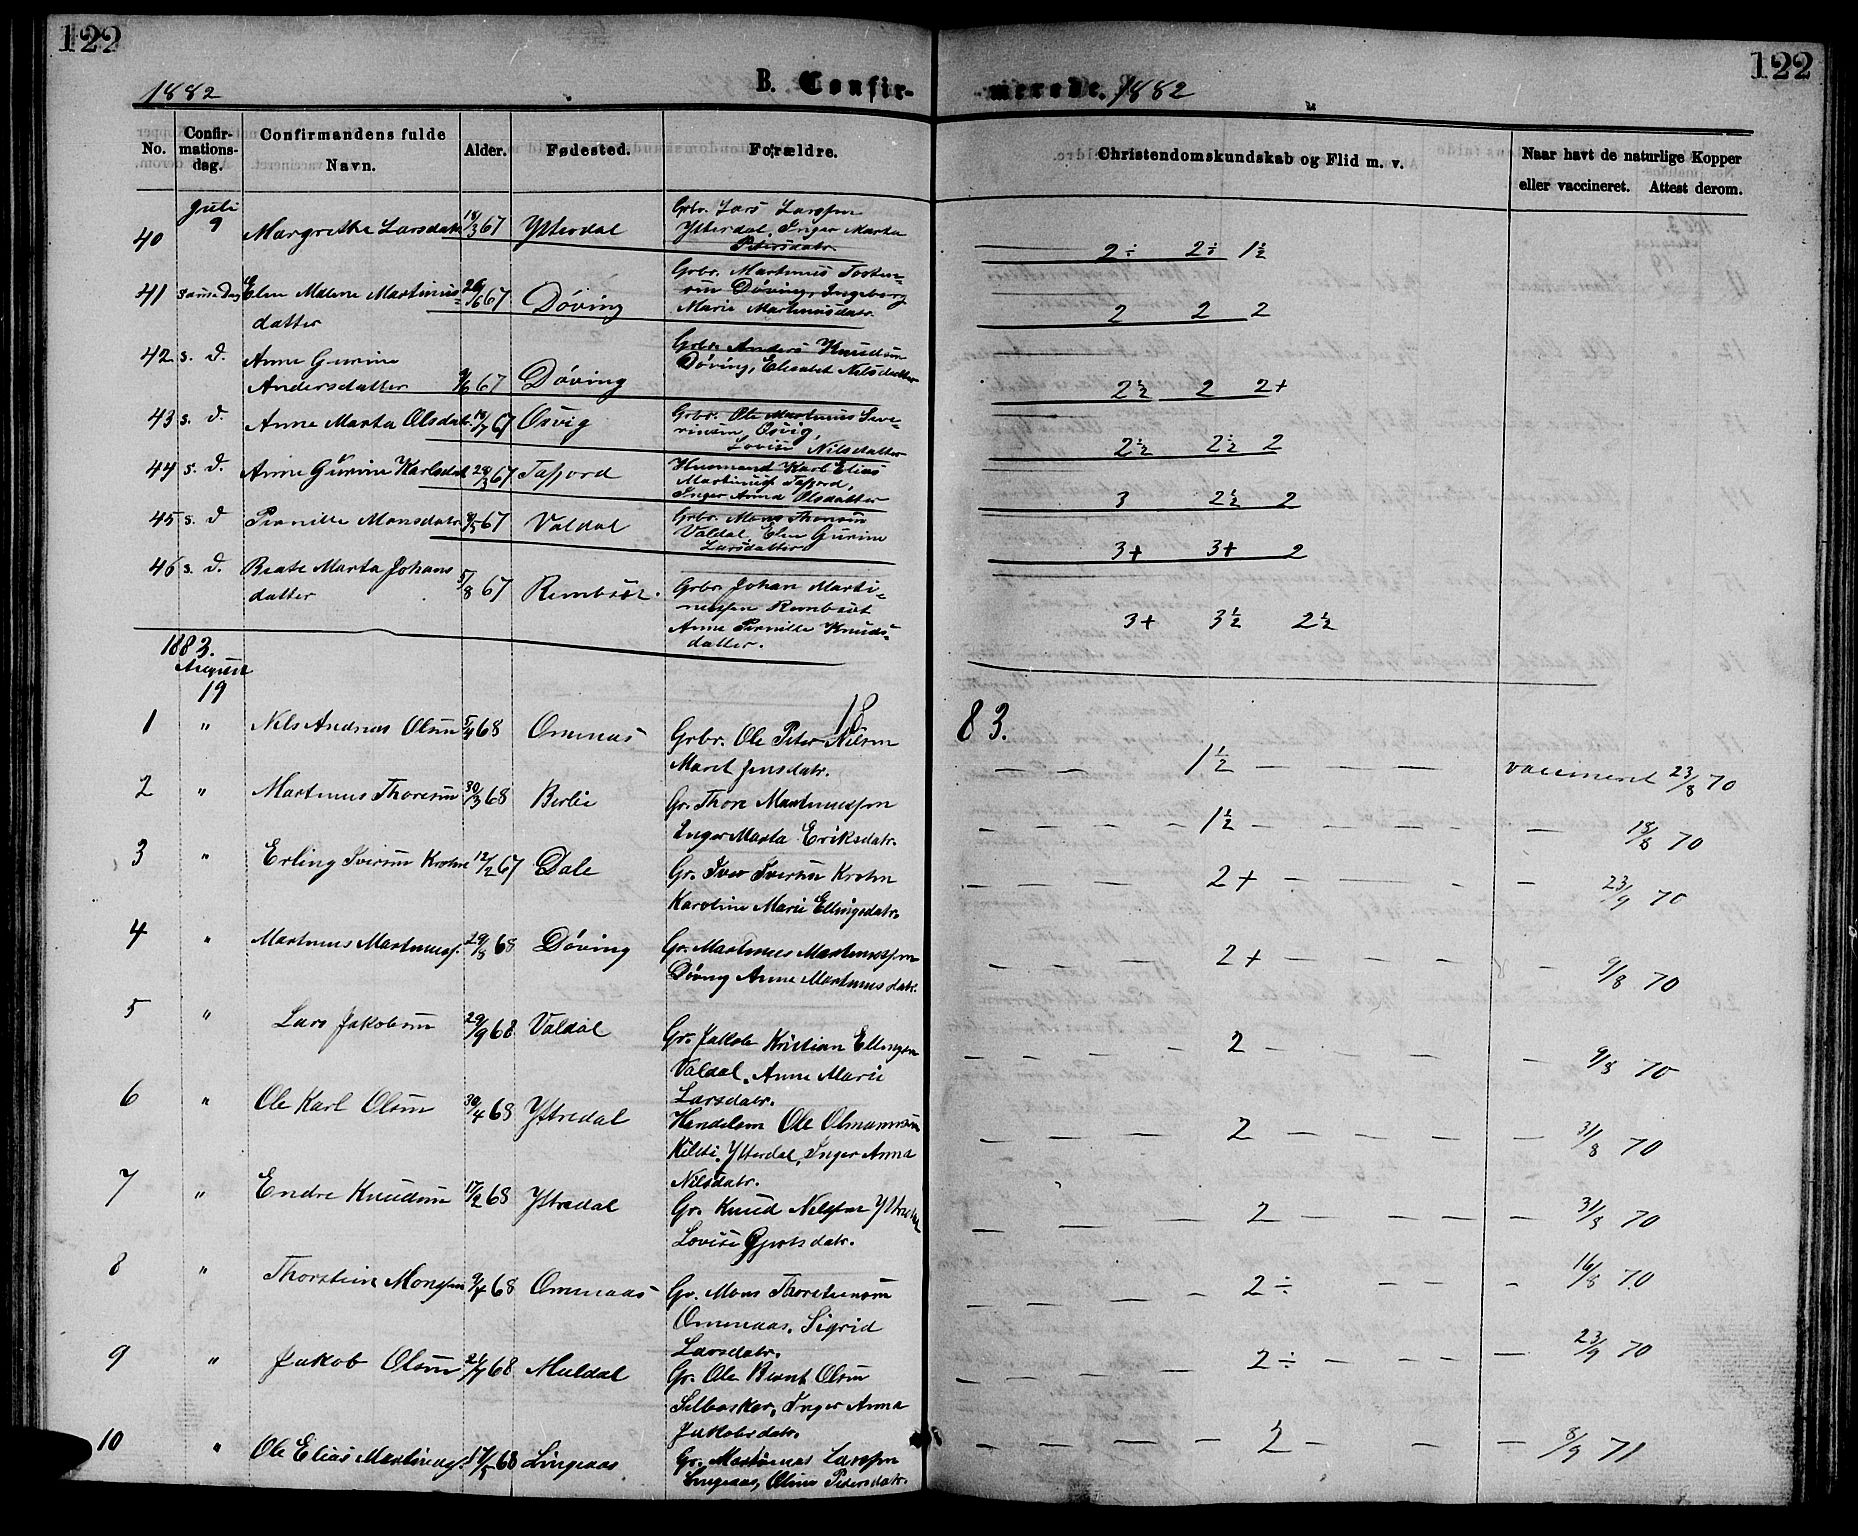 122
122
1882
B. Confir-
merede. 1882
No.
Confir-
mations-
dag.
Confirmandens fulde
Navn.
Alder.
Fødested.
Forældre.
Christendomskundskab og Flid m. v.
Naar havt de naturlige Kopper
eller vaccineret. Attest derom.
Juli
40 9 Margrethe Larsdatr 18/3 67 Ytterdal Grbr. Lars Larssen
Ytterdal, Inger Marta
Petersdatr. 2÷ 2÷ 1½
41 samme Dag Elen Malene Martinus- 26/6 67 Døving Grbr. Martinus Torsten-
datter sen Døving, Ingeborg
Marie Martinusdatr. 2 2 2
42 s. d. Anne Gurine
Andersdatter 9/6 67 Døving Grbr. Anders Knudsen
Døving, Elisabet Nilsdatter 2½ 2 2+
43 s. d. Anne Marta Olsdatr. 10/7 67 Osvig Grbr. Ole Martinus Seve-
rinsen, Osvig,
Lovise Nilsdatter 2½ 2½ 2
44 s. d. Anne Gurine Karlsdat 28/3 67 Tafjord Husmand Karl Elias
Martinus Tafjord,
Inger Anna Olsdatter 3 2½ 2
45 s. d Pernille Monsdatr 9/5 67 Valdal Grbr. Mons Thorsen
Valdal, Elen Gurine
Larsdatter 3+ 3+ 2
46 s. d. Beate Marta Johans
datter 5/8 67 Rembsøt. Grbr. Johan Marti-
nussen Rembsøt
Anne Pernille Knuds-
datter. 3+ 3½ 2½
1883.
August
19
1883.
1 " Nils Andreas Olsen 5/4 68 Omenaas Grbr. Ole Peter Nilsen
Marit Jensdatr. — — 1½ — — — vaccineret 23/8 70
2 " Martinus Thoresen 30/3 68 Berlie Gr. Thore Martinussen
Inger Marta Eriksdatr. — — — 1½ — — — — 18/8 70
3 " Erling Iversen Krohn 12/2 67 Dale Gr. Iver Iversen Krohn
Karoline Marie Ellingsdatr. — — — 2+ — — — — 23/9 70
4 " Martinus Martinuss. 29/8 68 Døving Gr. Martinus Martinussen
Døving Anne Martinusdatr. — — — 2+ — — — — 9/8 70
5 " Lars Jakobsen 29/9 68 Valdal Gr. Jakob Kristian Ellingsen
Valdal, Anne Marie
Larsdatr. — — — 2 — — — — 9/8 70
6 " Ole Karl Olsen 30/4 68 Ystredal Handelsm Ole Olmannsen
Kilsti, Ytterdal, Inger Anna
Nilsdatr. — — — 2 — — — — 31/8 70
7 " Endre Knudsen 17/2 68 Ystredal Gr. Knud Nilssen Ytredal
Lovise Gjertsdatr. — — — 2 — — — — 31/8 70
8 " Thorstein Monssen 9/4 68 Omenaas Gr. Mons Thorsteinsen
Omenaas, Sigrid
Larsdatr. — — — 2÷ — — — 16/8 70
9 " Jakob Olsen 24/7 68 Muldal Gr. Ole Bernt Olsen
Selboskar, Inger Anna
Jakobsdatr. — — — 2÷ — — — — 23/9 70
10 " Ole Elias Martinuss. 17/5 68 Lingeaas Gr. Martinus Larssen
Lingeaas, Oline Pedersdatr. — — — 2 — — — 8/9 71